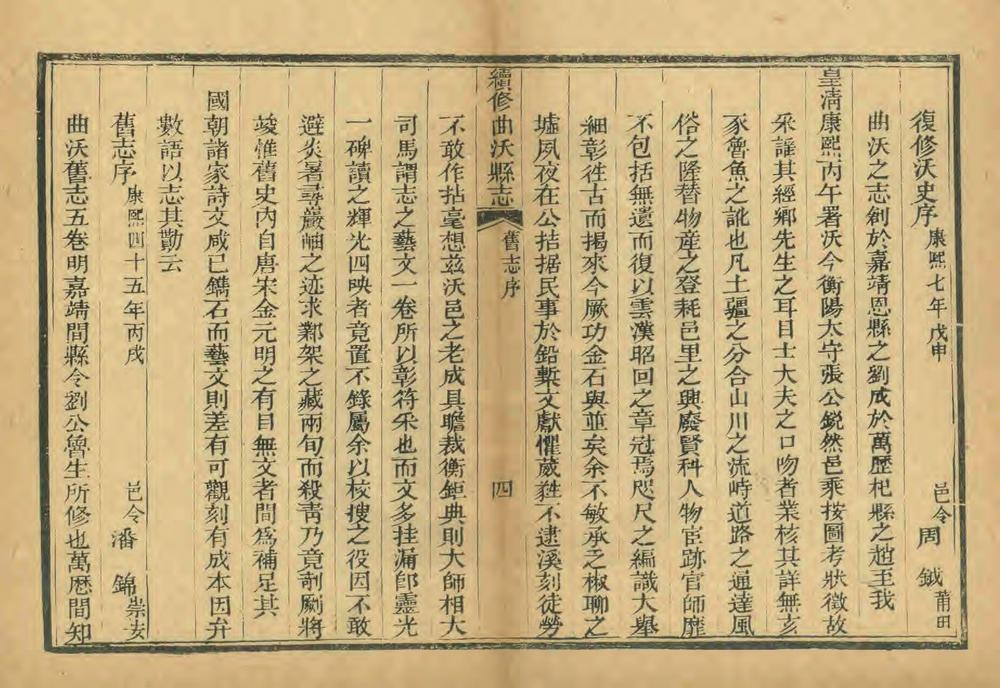 復修沃史序 康熙七年戊申 邑令 周鉞 莆田
曲沃之志創於嘉靖恩縣之劉成於萬歷杞縣之趙至我
皇清康熙丙午署沃今衡陽太守張公銳然邑乘按圖考狀徵故
采謠其經鄉先生之耳目士大夫之口吻者業核其詳無亥
豕魯魚之訛也凡土疆之分合山川之流峙道路之通達風
俗之隆替物產之登耗邑里之興廢賢科人物宦跡官師靡
不包括無遺而復以雲漢昭回之章冠焉咫尺之編識大舉
細彰徃古而揭來今厥功金石與並矣余不敏承乏椒聊之
墟夙夜在公拮据民事於鉛槧文獻懼葳甤不逮溪刻徒勞
續修曲沃縣志 舊志序 四
不敢作拈毫想茲沃邑之老成具瞻裁衡鉅典則大師相大
司馬謂志之藝文一卷所以彰符采也而文多挂漏卽靈光
一碑讀之輝光四映者竟置不錄屬余以核搜之役因不敢
避炎暑尋巖岫之迹求鄴架之藏兩旬而殺青乃竟剞劂將
竣惟舊史內自唐宋金元明之有目無文者間爲補足其
國朝諸家詩文咸已鐫石而藝文則差有可觀刻有成本因弁
數語以志其勤云
舊志序 康熙四十五年丙戌 邑令 潘錦 崇安
曲沃舊志五卷明嘉靖間縣令劉公魯生所修也萬歷間知